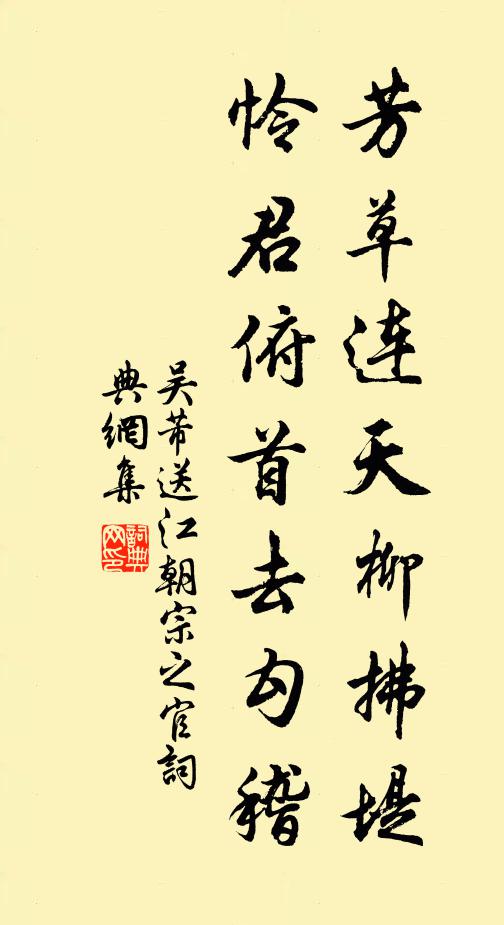 芳草連天柳拂堤
怜君俯首去勾稽
吴芾送江朝宗之官詞
典網集
詞典
网印